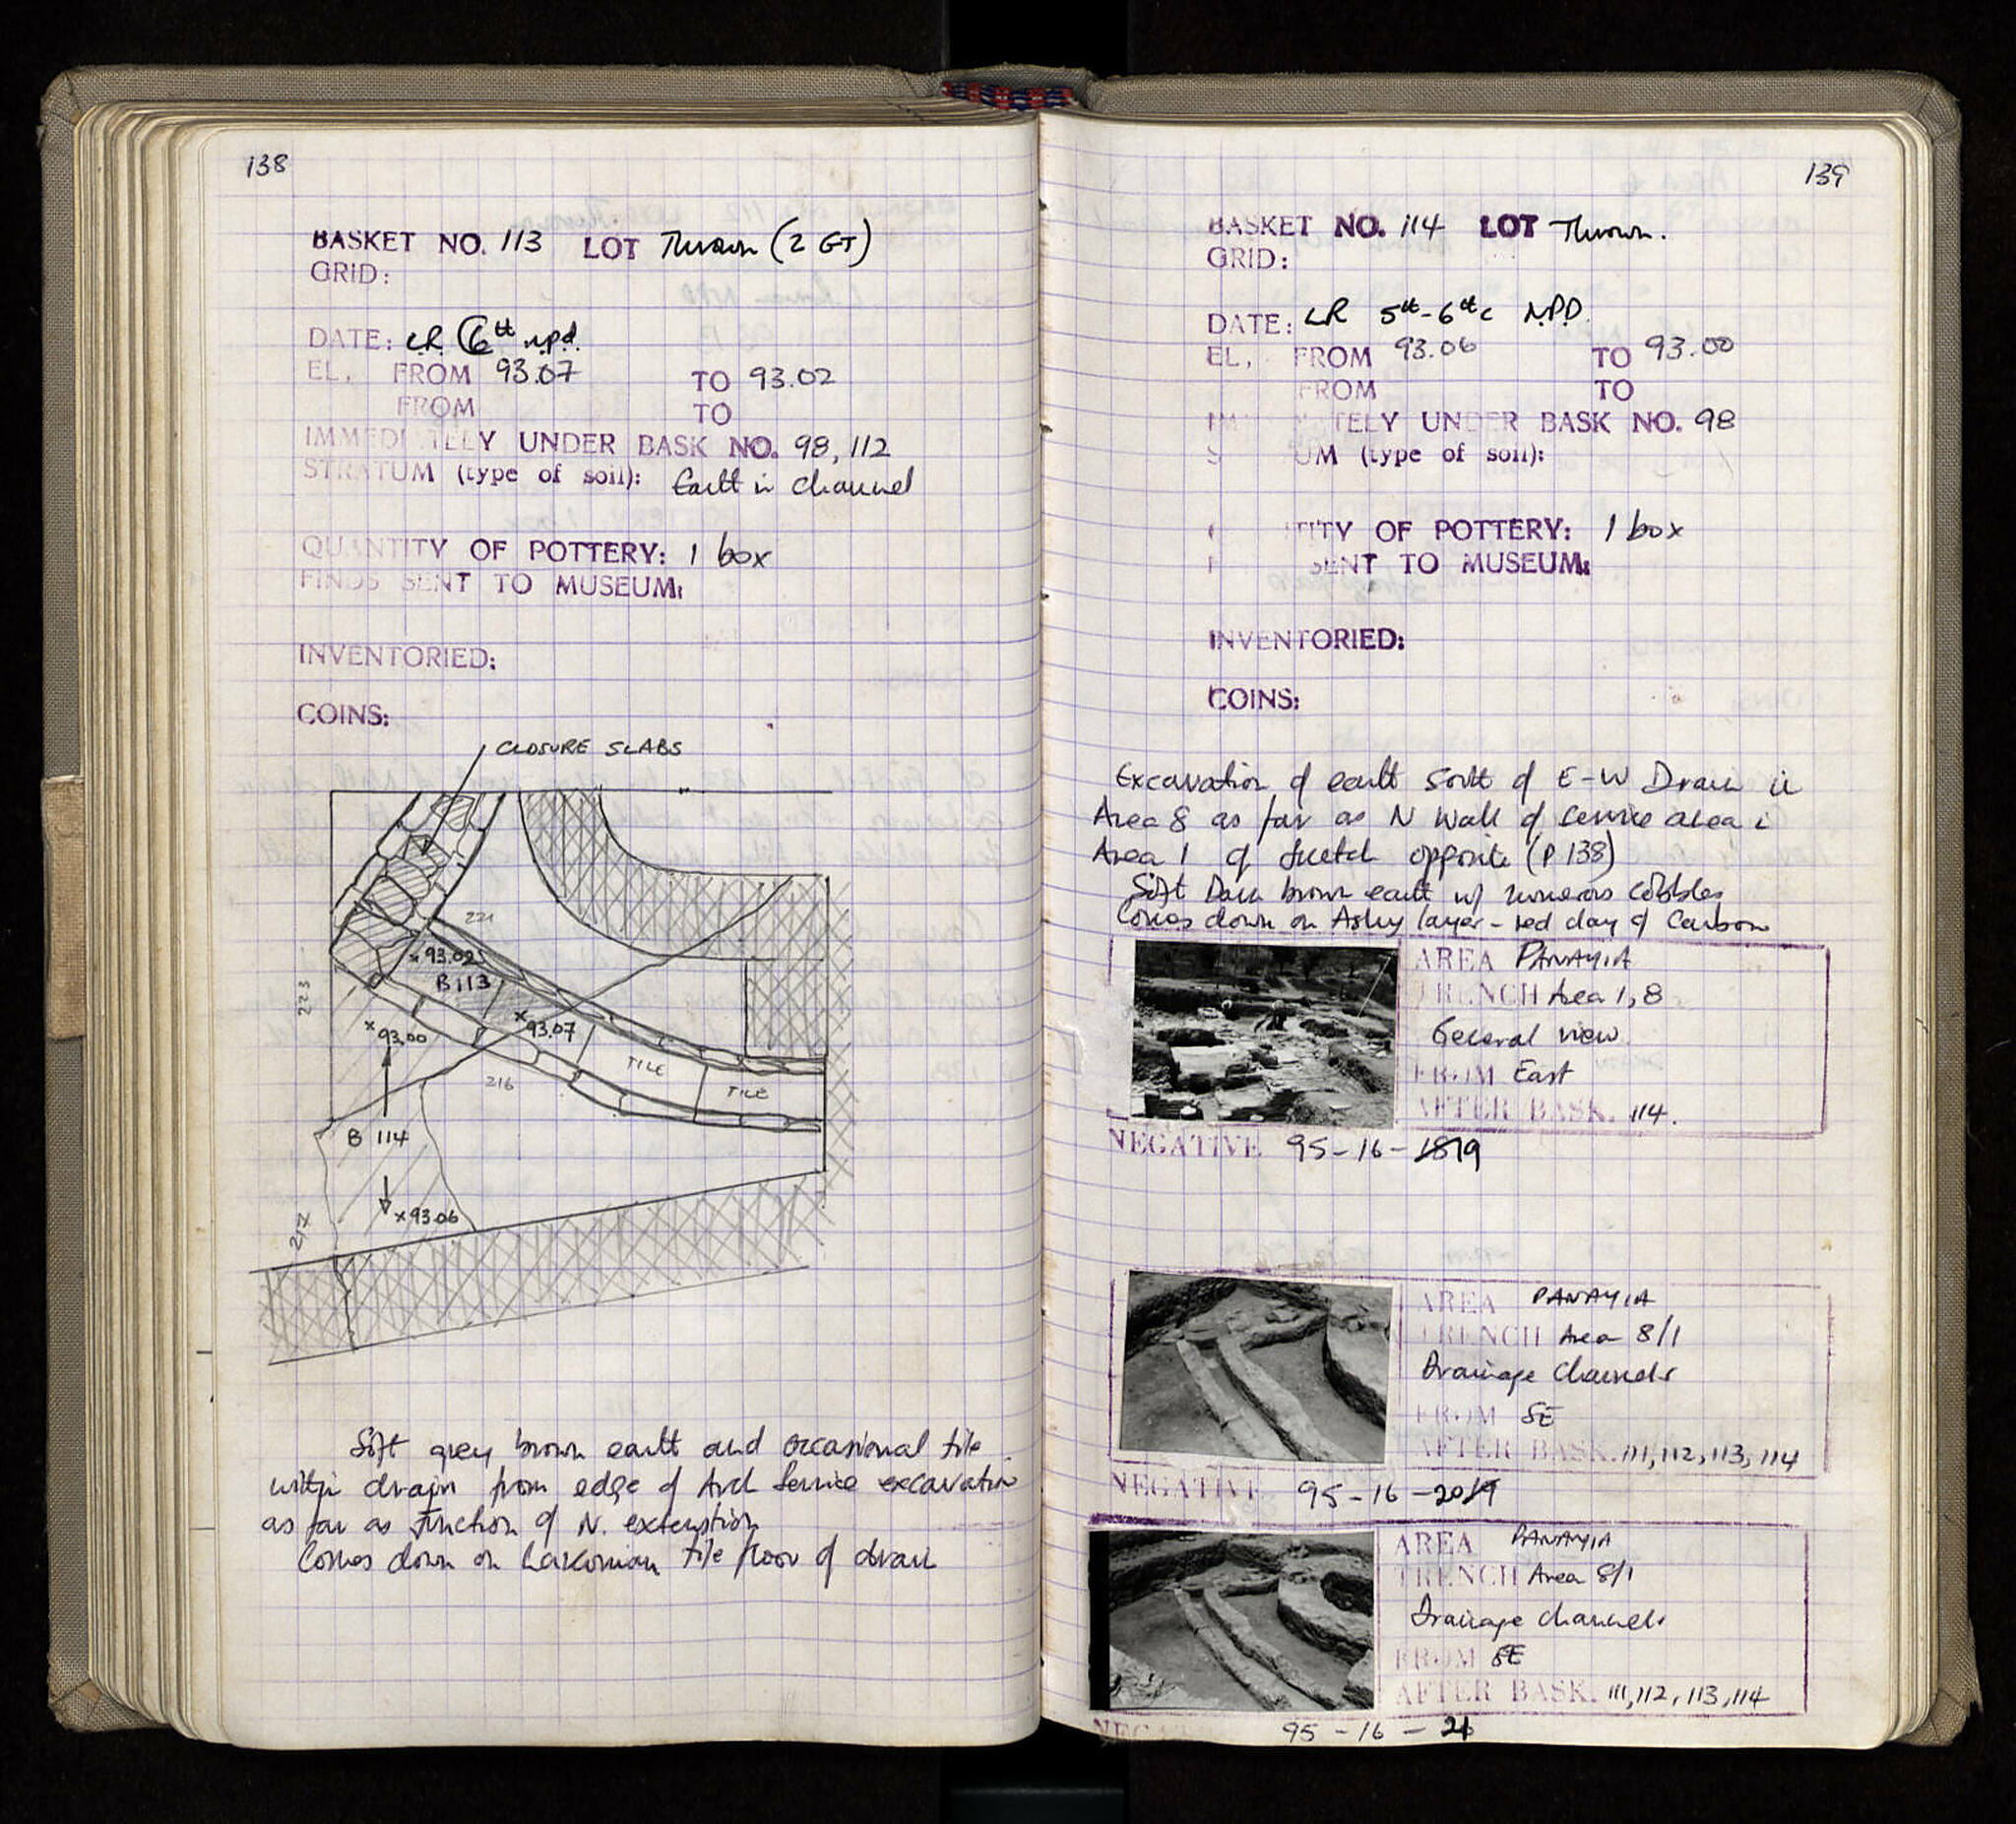 138
BASKET NO. 113 LOT Thrown (2 GT)
GRID:
DATE: LR (6th npd.
EL. FROM 93.07 TO 93.02
FROM TO
IMMEDIATELY UNDER BASK NO. 98, 112
STRATUM (type of soil): Earth in channel
QUANTITY OF POTTERY: 1 box
FINDS SENT TO MUSEUM:
INVENTORIED:
COINS:
CLOSURE SLABS
221
93.02
B 113
223
93.00
93.07
TILE
216
TILE
B 114
93.06
217
Soft grey brown earth and occasional tile
within drain from edge of Arch Service excavation
as far as junction of N. extenstion
Comes down on Lakonian tile floor of drain
139
BASKET NO. 114 LOT Thrown.
GRID:
DATE: LR 5th-6th c N.P.D.
EL. FROM 93.06 TO 93.00
FROM TO
IMMEDIATELY UNDER BASK NO. 98
STRATUM (type of soil):
QUANTITY OF POTTERY: 1 box
FINDS SENT TO MUSEUM:
INVENTORIED:
COINS:
Excavation of earth South of E-W Drain in
Area 8 as far as N Wall of Service area in
Area 1 cf Sketch opposite (P 138)
Soft Dark brown earth w/ numerous cobbles
Comes down on Ashy layer - red clay & Carbon
AREA PANAYIA
TRENCH Area 1, 8
General view
FROM East
AFTER BASK. 114.
NEGATIVE 95-16-19
AREA PANAYIA
TRENCH Area 8/1
Drainage Channels
FROM SE
AFTER BASK. 111, 112, 113, 114
NEGATIVE 95-16-20
AREA PANAYIA
TRENCH Area 8/1
Drainage channels
FROM SE
AFTER BASK. 111, 112, 113, 114
NEGATIVE 95-16-21